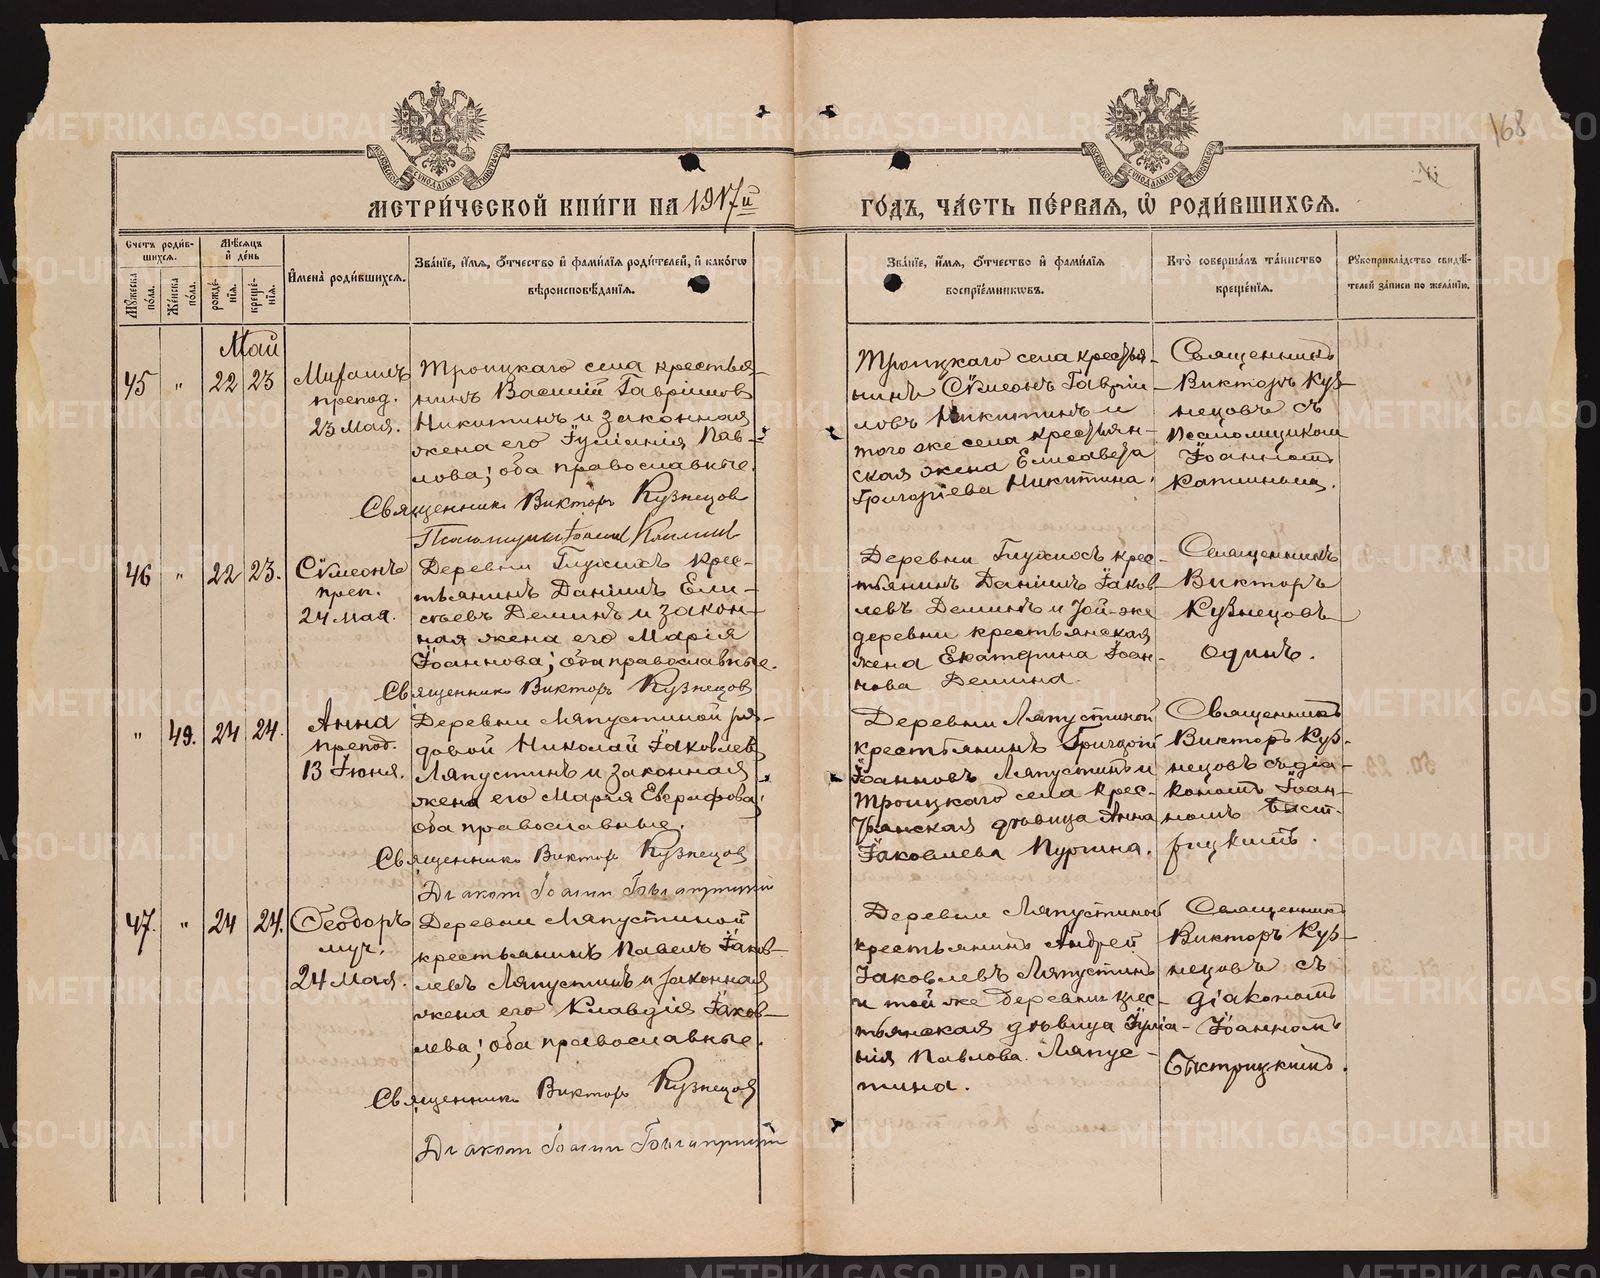 168
МЕТРИ́ЧЕСКОЙ КНИ́ГИ НА 1917й
ГО́ДЪ, ЧА́СТЬ ПЕ́РВАЯ, Ѡ҆ РОДИ́ВШИХСЯ.
Счетъ роди́вшихся.
Мѹ́жеска по́ла.
Же́нска по́ла.
Мѣ́сяцъ и҆ де́нь
рожде́нїя.
креще́нїя.
И҆мена̀ роди́вшихся.
Зва́нїе, и҆́мя, ѻ҆́тчество и҆ фами́лїя роди́телей, и҆ како́гѡ
вѣроисповѣ́данїя.
Зва́нїе, и҆́мя, ѻ҆́тчество и҆ фами́лїя
воспрїе́мникѡвъ.
Кто̀ соверша́лъ та́инство
креще́нїя.
Рѹкоприкла́дство свидѣ́-
телей за́писи по жела́нїю.
Май
45 " 22 23
Михаилъ
препод.
23 Мая.
Троицкаго села крестья-
нинъ Василій Гавріиловъ
Никитинъ и законная
жена его Іуліанія Пав-
лова; оба православные.
Священникъ Викторъ Кузнецовъ
Псаломщикъ Іоаннъ
Троицкаго села крестья-
нинъ Сѵмеонъ Гавріи-
ловъ Никитинъ и
того же села крестьян-
ская жена Елисавета
Григоріева Никитина.
Священникъ
Викторъ Куз-
нецовъ съ
псаломщикомъ
Іоанномъ
46 " 22 23.
Сѵмеонъ
преп.
24 Мая.
Деревни Глухихъ крес-
тьянинъ Даніилъ Ели-
сѣевъ Деминъ и закон-
ная жена его Марія
Іоаннова; оба православные.
Священникъ Викторъ Кузнецовъ
Деревни Глухихъ крес-
тьянинъ Даніилъ Іаков-
левъ Деминъ и той-же
деревни крестьянская
жена Екатерина Іоан-
нова Демина.
Священникъ
Викторъ
Кузнецовъ
одинъ.
" 49. 24 24.
Анна
препод.
13 Іюня.
Деревни Ляпустиной ря-
довой Николай Іаковлевъ
Ляпустинъ и законная
жена его Марія
оба православные.
Священникъ Викторъ Кузнецовъ
Діаконъ Іоаннъ Быстрицкій
Деревни Ляпустиной
крестьянинъ Григорій
Іоанновъ Ляпустинъ и
Троицкаго села крес-
тьянская дѣвица Анна
Іаковлева Пургина.
Священникъ
Викторъ Куз-
нецовъ съ діа-
кономъ Іоан-
номъ Быст-
рицкимъ.
47. " 24 24.
Ѳеодоръ
муч.
24 Мая.
Деревни Ляпустиной
крестьянинъ Павелъ Іаков-
левъ Ляпустинъ и законная
жена его Клавдія Іаков-
лева; оба православные.
Священникъ Викторъ Кузнецовъ
Діаконъ Іоаннъ Быстрицкій
Деревни Ляпустиной
крестьянинъ Андрей
Іаковлевъ Ляпустинъ
и той же деревни крес-
тьянская дѣвица Іуліа-
нія Павлова Ляпус-
тина.
Священникъ
Викторъ Куз-
нецовъ съ
діакономъ
Іоанномъ
Быстрицкимъ.
METRIKI.GASO-URAL.RU